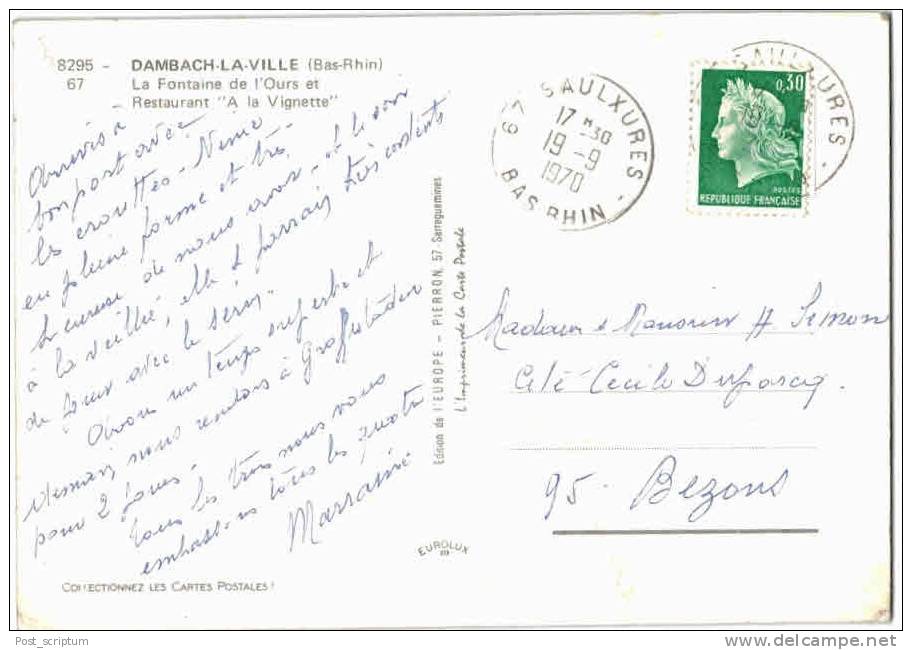 8295 - DAMBACH-LA-VILLE (Bas-Rhin)
67 La Fontaine de l'Ours et
- Restaurant "A la Vignette"
Arrivés à
bon port avec
les crouttes - Nénie
en pleine forme et très
heureuse de nous avoir - et le soir
à la veillée, elle & parrain très contents
de jouer avec le
Avons un temps superbe et
demain, nous rendons à Graffestaden
pour 2 jours.
Tous les trois nous vous
embrassons tous les quatre
Marraine
COLLECTIONNEZ LES CARTES POSTALES !
Edition de l'EUROPE - PIERRON, 57-Sarreguemines
L'Imprimeur de la Carte Postale
EUROLUX
67 SAULXURES
17 H 30
19 - 9
1970
BAS RHIN
0,30
POSTES
REPUBLIQUE FRANÇAISE
SAULXURES
Madame & Monsieur H Simon
Cité Cécile Duparcq.
95 - Bezons
Post_scriptum
delcampe.net